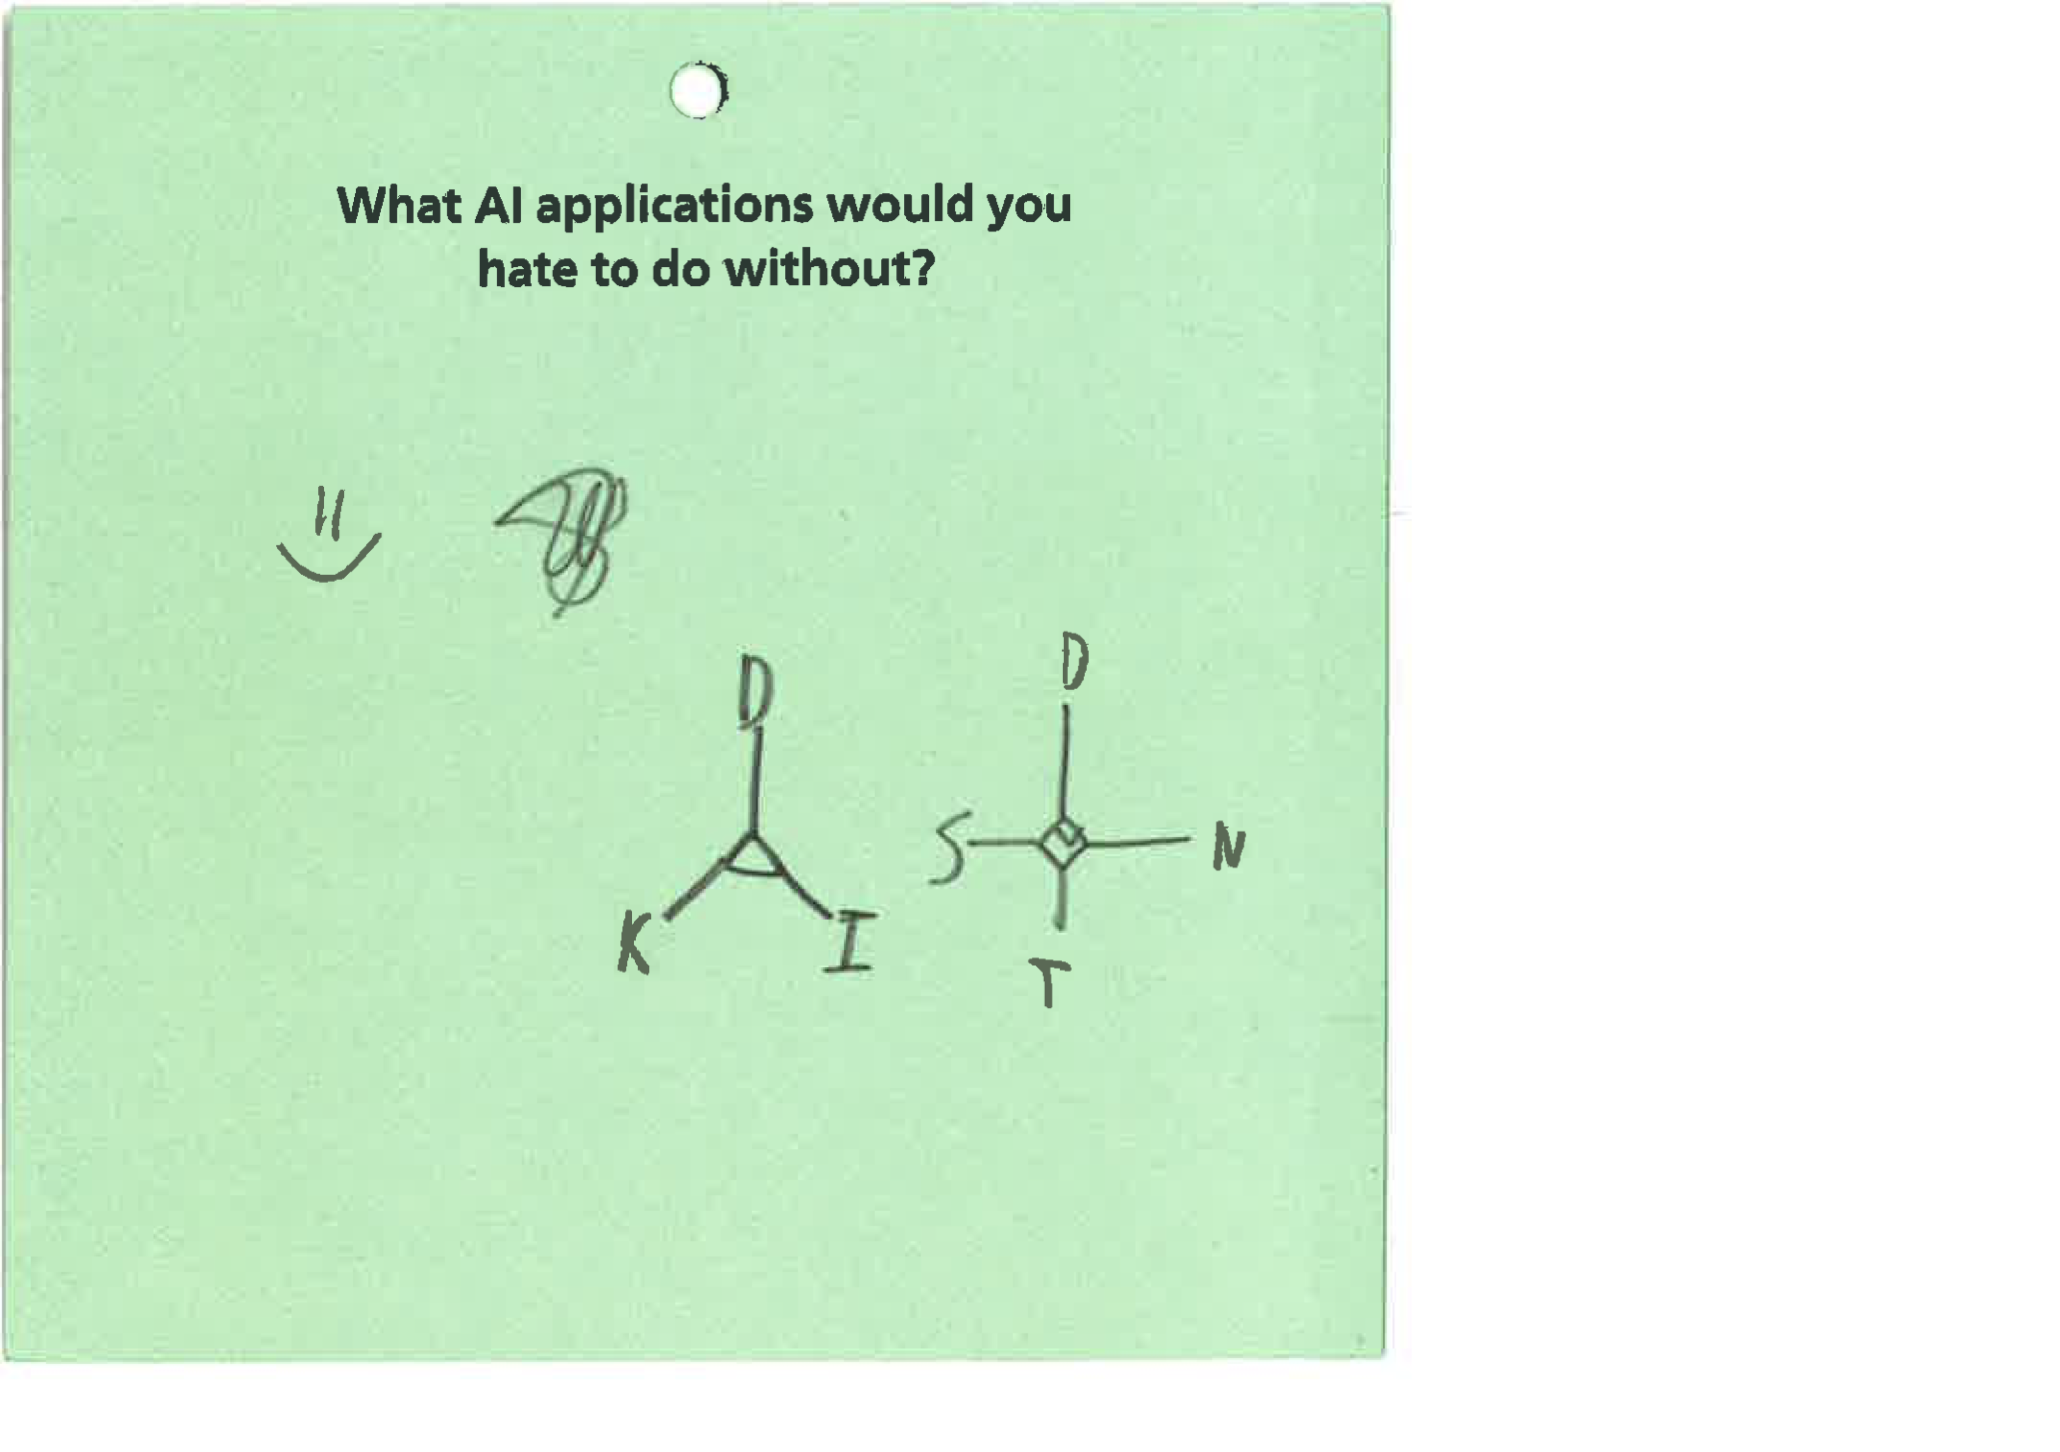 What AI applications would you
hate to do without?
D
K I
D
S N
T